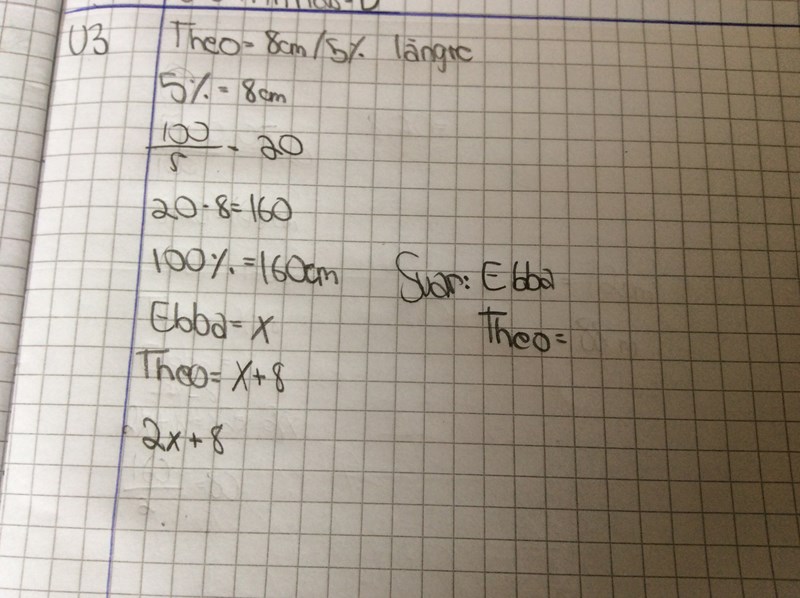 U3 Theo= 8cm/5% längre
5% = 8cm
100/5 = 20
20·8=160
100%=160cm
Ebba=x
Theo=x+8
2x+8
Svar: Ebba
Theo=